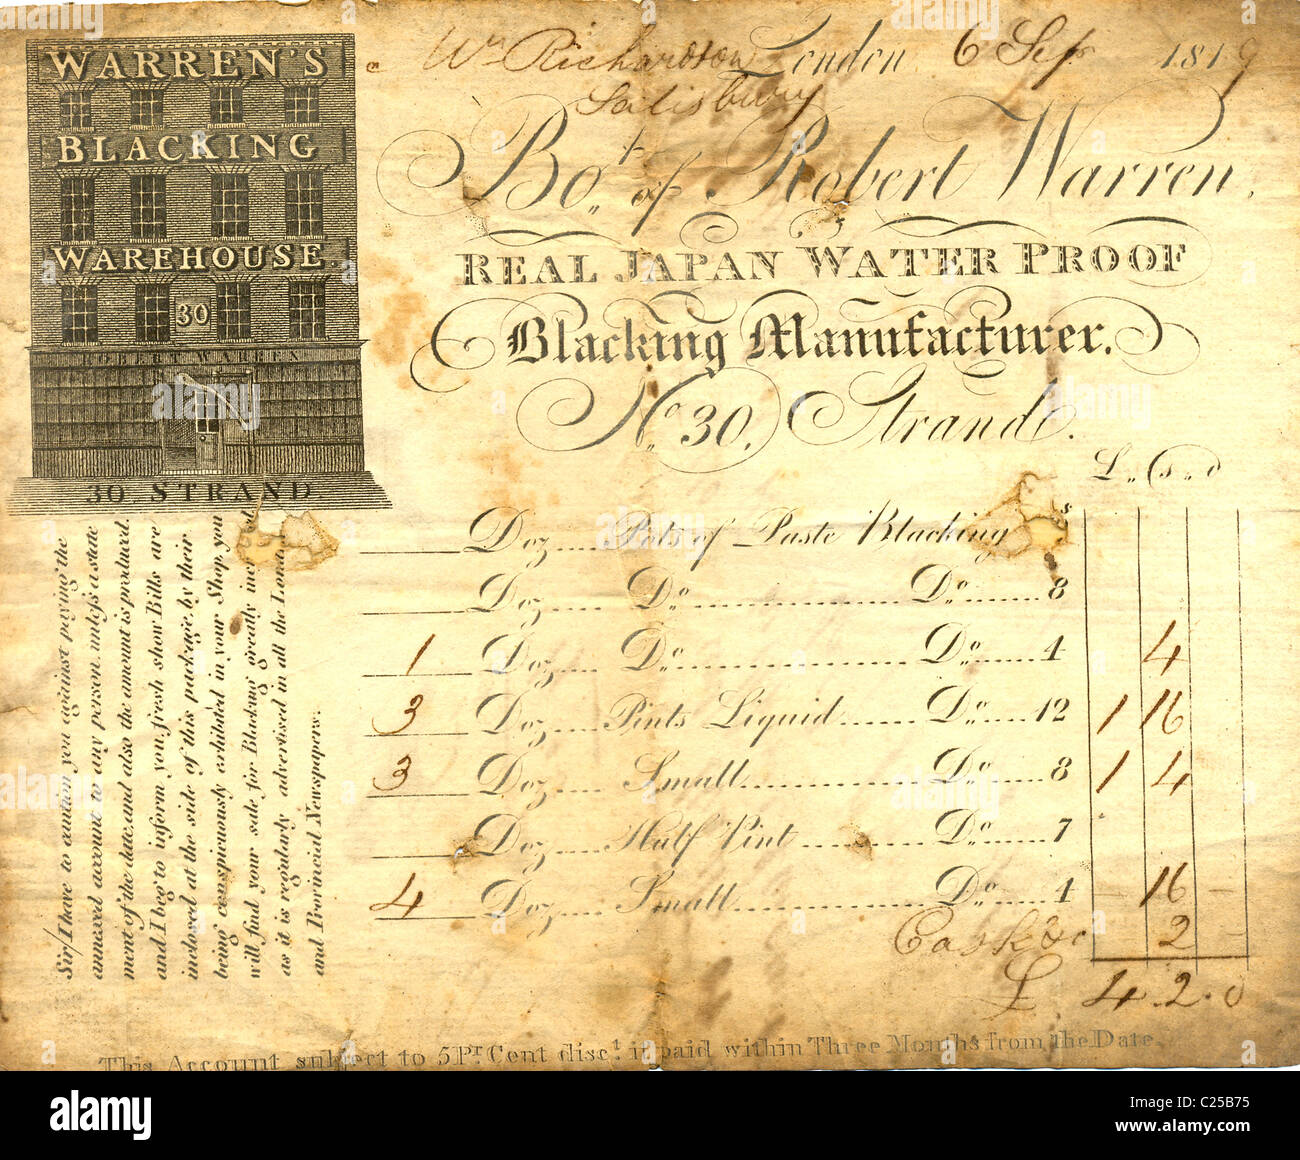 WARREN'S
BLACKING
WAREHOUSE.
30
ROBERT WARREN
30 STRAND
Wm Richardson London, 6 Sep 1819
Salisbury
Bo.t of Robert Warren,
REAL JAPAN WATER PROOF
Blacking Manufacturer.
No. 30, Strand.
L.. s.. d
Doz.... Pots of Paste Blacking s
Doz.... Do. .... Do. .... 8
1 Doz.... Do. .... Do. .... 4 4
3 Doz.... Pints Liquid .... Do. .... 12 1 16
3 Doz.... Small .... Do. .... 8 1 4
Doz.... Half Pint .... Do. .... 7
4 Doz.... Small .... Do. .... 4 - 16 -
Cask &c 2 -
£ 4.2.0
Sir/ I have to caution you against paying the
annexed account to any person, unless a state
ment of the date, and also the amount is produced.
and I beg to inform you, fresh show Bills are
inclosed at the side of this package, by their
being conspicuously exhibited in your Shop you
will find your sale for Blacking greatly
as it is regularly advertised in all the
and Provincial Newspapers.
This Account subject to 5 Pr. Cent disct. if paid within Three Months from the Date.
alamy
Image ID: C25B75
www.alamy.com